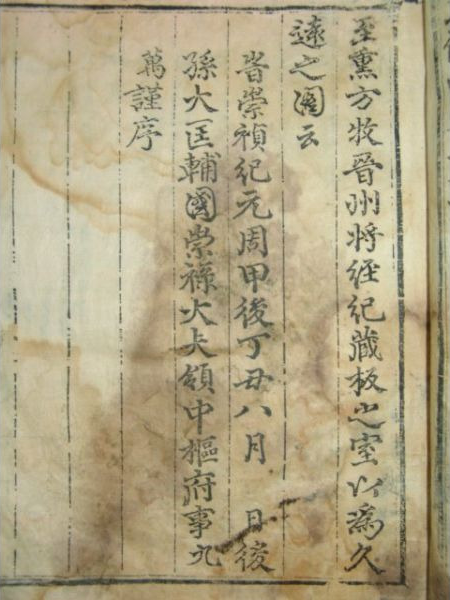 至熏方牧晉州將経紀藏板之室以爲久
遠之圖云
旹崇禎紀元周甲後丁丑八月　日後
孫大匡輔國崇祿大夫領中樞府事九
萬謹序